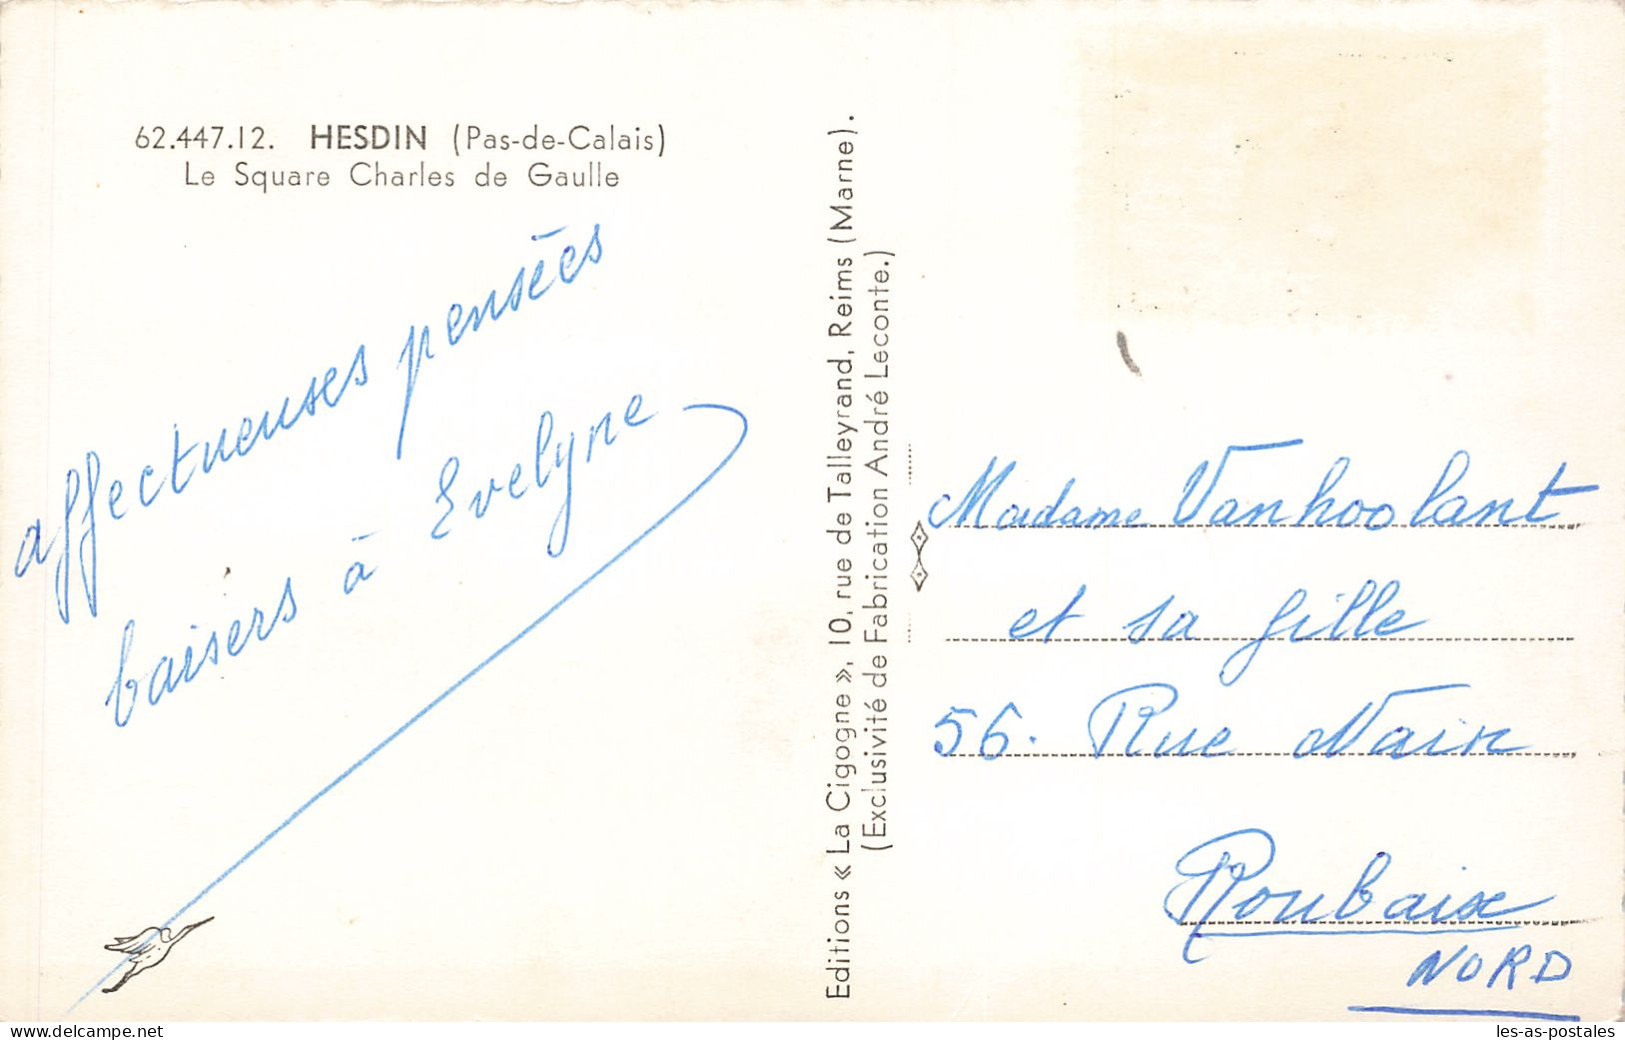 62.447.12. HESDIN (Pas-de-Calais)
Le Square Charles de Gaulle
affectueuses pensées
baisers à Evelyne
Editions « La Cigogne », 10, rue de Talleyrand, Reims (Marne).
(Exclusivité de Fabrication André Leconte.)
Madame Vanhoolant
et sa fille
56. Rue Nain
Roubaix
NORD
www.delcampe.net
les-as-postales